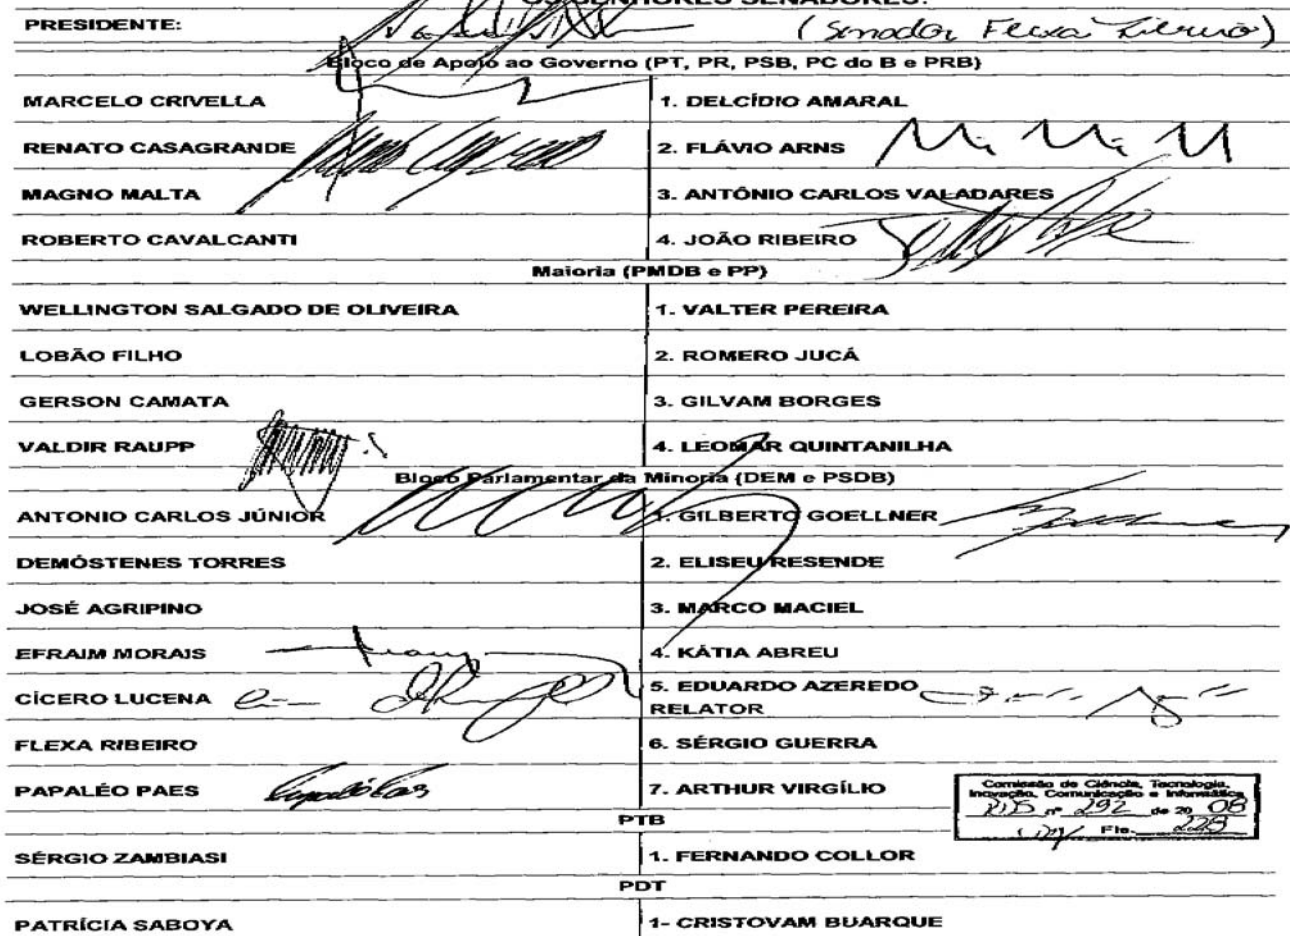 OS SENHORES SENADORES:
PRESIDENTE: (Senador Flexa Ribeiro)
Bloco de Apoio ao Governo (PT, PR, PSB, PC do B e PRB)
MARCELO CRIVELLA 1. DELCÍDIO AMARAL
RENATO CASAGRANDE 2. FLÁVIO ARNS
MAGNO MALTA 3. ANTÔNIO CARLOS VALADARES
ROBERTO CAVALCANTI 4. JOÃO RIBEIRO
Maioria (PMDB e PP)
WELLINGTON SALGADO DE OLIVEIRA 1. VALTER PEREIRA
LOBÃO FILHO 2. ROMERO JUCÁ
GERSON CAMATA 3. GILVAM BORGES
VALDIR RAUPP 4. LEOMAR QUINTANILHA
Bloco Parlamentar da Minoria (DEM e PSDB)
ANTONIO CARLOS JÚNIOR 1. GILBERTO GOELLNER
DEMÓSTENES TORRES 2. ELISEU RESENDE
JOSÉ AGRIPINO 3. MARCO MACIEL
EFRAIM MORAIS 4. KÁTIA ABREU
CÍCERO LUCENA 5. EDUARDO AZEREDO
RELATOR
FLEXA RIBEIRO 6. SÉRGIO GUERRA
PAPALÉO PAES 7. ARTHUR VIRGÍLIO
Comissão de Ciência, Tecnologia,
Inovação, Comunicação e Informática
PDS nº 292 de 20 08
Fls. 229
PTB
SÉRGIO ZAMBIASI 1. FERNANDO COLLOR
PDT
PATRÍCIA SABOYA 1- CRISTOVAM BUARQUE